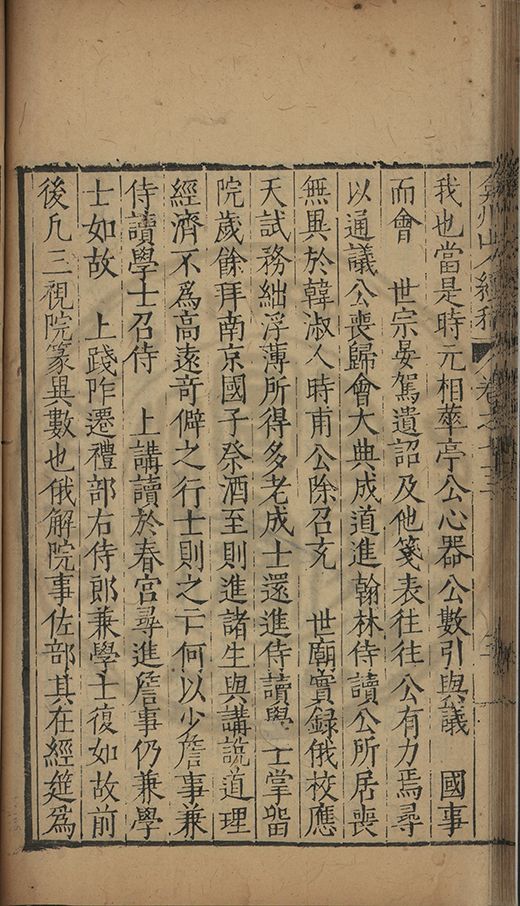 弇州山人續稿 卷之
我也當是時元相華亭公心器公數引與議　國事
而會　世宗晏駕遺詔及他箋表往往公有力焉尋
以通議公喪歸會大典成道進翰林侍讀公所居喪
無異於韓淑人時甫公除召充　世廟實録俄校應
天試務絀浮薄所得多老成士還進侍讀學士掌畱
院歲餘拜南京國子祭酒至則進諸生與講說道理
經濟不爲高遠奇僻之行士則之亡何以少詹事兼
侍讀學士召侍　上講讀於春宮尋進詹事仍兼學
士如故　上踐阼遷禮部右侍郎兼學士復如故前
後凡三視院篆異數也俄解院事佐部其在經筵爲